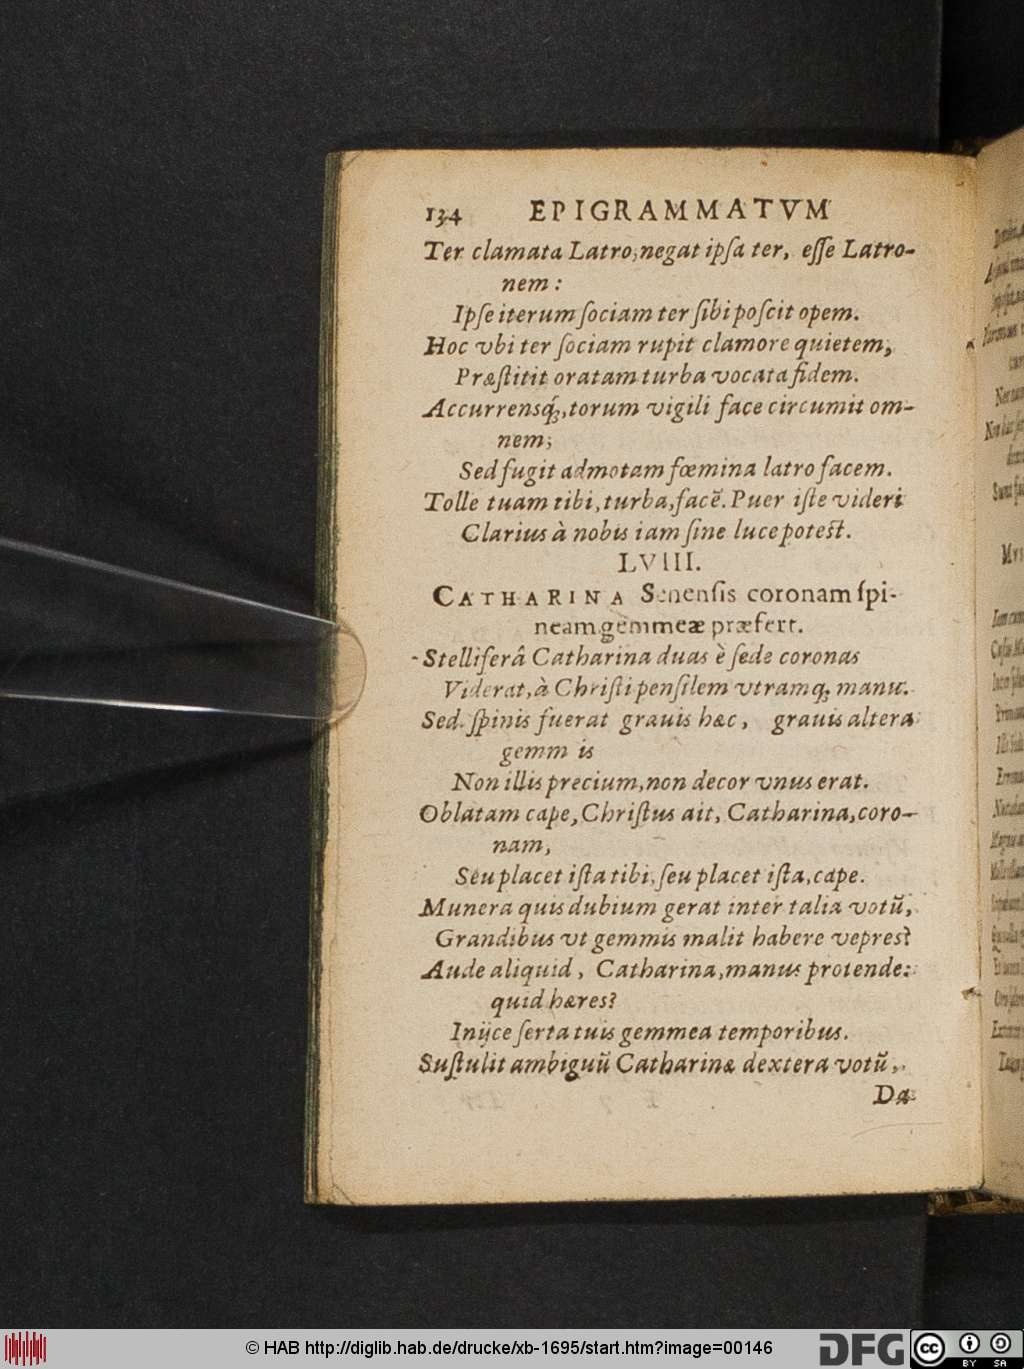 134 EPIGRAMMATVM
Ter clamata Latro, negat ipſa ter, eſſe Latro-
nem:
Ipſe iterum ſociam ter ſibi poſcit opem.
Hoc vbi ter ſociam rupit clamore quietem,
Præſtitit oratam turba vocata fidem.
Accurrensq́;, torum vigili face circumit om-
nem;
Sed fugit admotam fœmina latro facem.
Tolle tuam tibi, turba, facē. Puer iſte videri
Clarius à nobis iam ſine luce potest.
LVIII.
CATHARINA Senenſis coronam ſpi-
neam gemmeæ præfert.
Stelliferâ Catharina duas è ſede coronas
Viderat, à Chriſti penſilem vtramq; manu.
Sed ſpinis fuerat grauis hæc, grauis altera
gemm is
Non illis precium, non decor vnus erat.
Oblatam cape, Chriſtus ait, Catharina, coro-
nam,
Seu placet iſta tibi, ſeu placet iſta, cape.
Munera quis dubium gerat inter talia votū,
Grandibus vt gemmis malit habere vepres?
Aude aliquid, Catharina, manus protende:
quid hæres?
Inijce ſerta tuis gemmea temporibus.
Suſtulit ambiguū Catharinæ dextera votū,
Da
© HAB http://diglib.hab.de/drucke/xb-1695/start.htm?image=00146
DFG
cc
BY SA